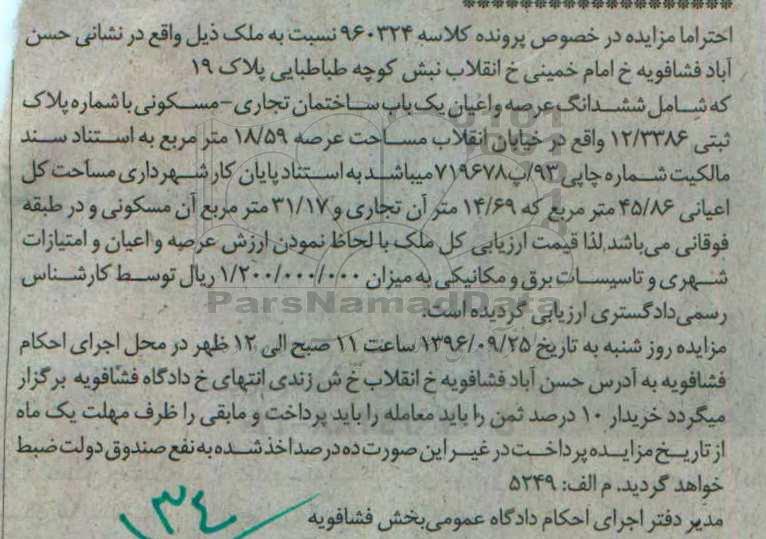 ********************
احتراما مزایده در خصوص پرونده کلاسه ۹۶۰۳۲۴ نسبت به ملک ذیل واقع در نشانی حسن
آباد فشافویه خ امام خمینی خ انقلاب نبش کوچه طباطبایی پلاک ۱۹
که شامل ششدانگ عرصه واعیان یک باب ساختمان تجاری-مسکونی با شماره پلاک
ثبتی ۱۲/۳۳۸۶ واقع در خیابان انقلاب مساحت عرصه ۱۸/۵۹ متر مربع به استناد سند
مالکیت شماره چاپی ۹۳/پ۷۱۹۶۷۸ میباشد به استناد پایان کار شهرداری مساحت کل
اعیانی ۴۵/۸۶ متر مربع که ۱۴/۶۹ متر آن تجاری و ۳۱/۱۷ متر مربع آن مسکونی و در طبقه
فوقانی می‌باشد لذا قیمت ارزیابی کل ملک با لحاظ نمودن ارزش عرصه و اعیان و امتیازات
شهری و تاسیسات برق و مکانیکی به میزان ۱/۲۰۰/۰۰۰/۰۰۰ ریال توسط کارشناس
رسمی دادگستری ارزیابی گردیده است.
ParsNamadData
مزایده روز شنبه به تاریخ ۱۳۹۶/۰۹/۲۵ ساعت ۱۱ صبح الی ۱۲ ظهر در محل اجرای احکام
فشافویه به آدرس حسن آباد فشافویه خ انقلاب خ ش زندی انتهای خ دادگاه فشافویه برگزار
میگردد خریدار ۱۰ درصد ثمن را باید معامله را باید پرداخت و مابقی را ظرف مهلت یک ماه
از تاریخ مزایده پرداخت در غیر این صورت ده درصد اخذ شده به نفع صندوق دولت ضبط
خواهد گردید. م الف: ۵۲۴۹
مدیر دفتر اجرای احکام دادگاه عمومی بخش فشافویه
۱۳۴